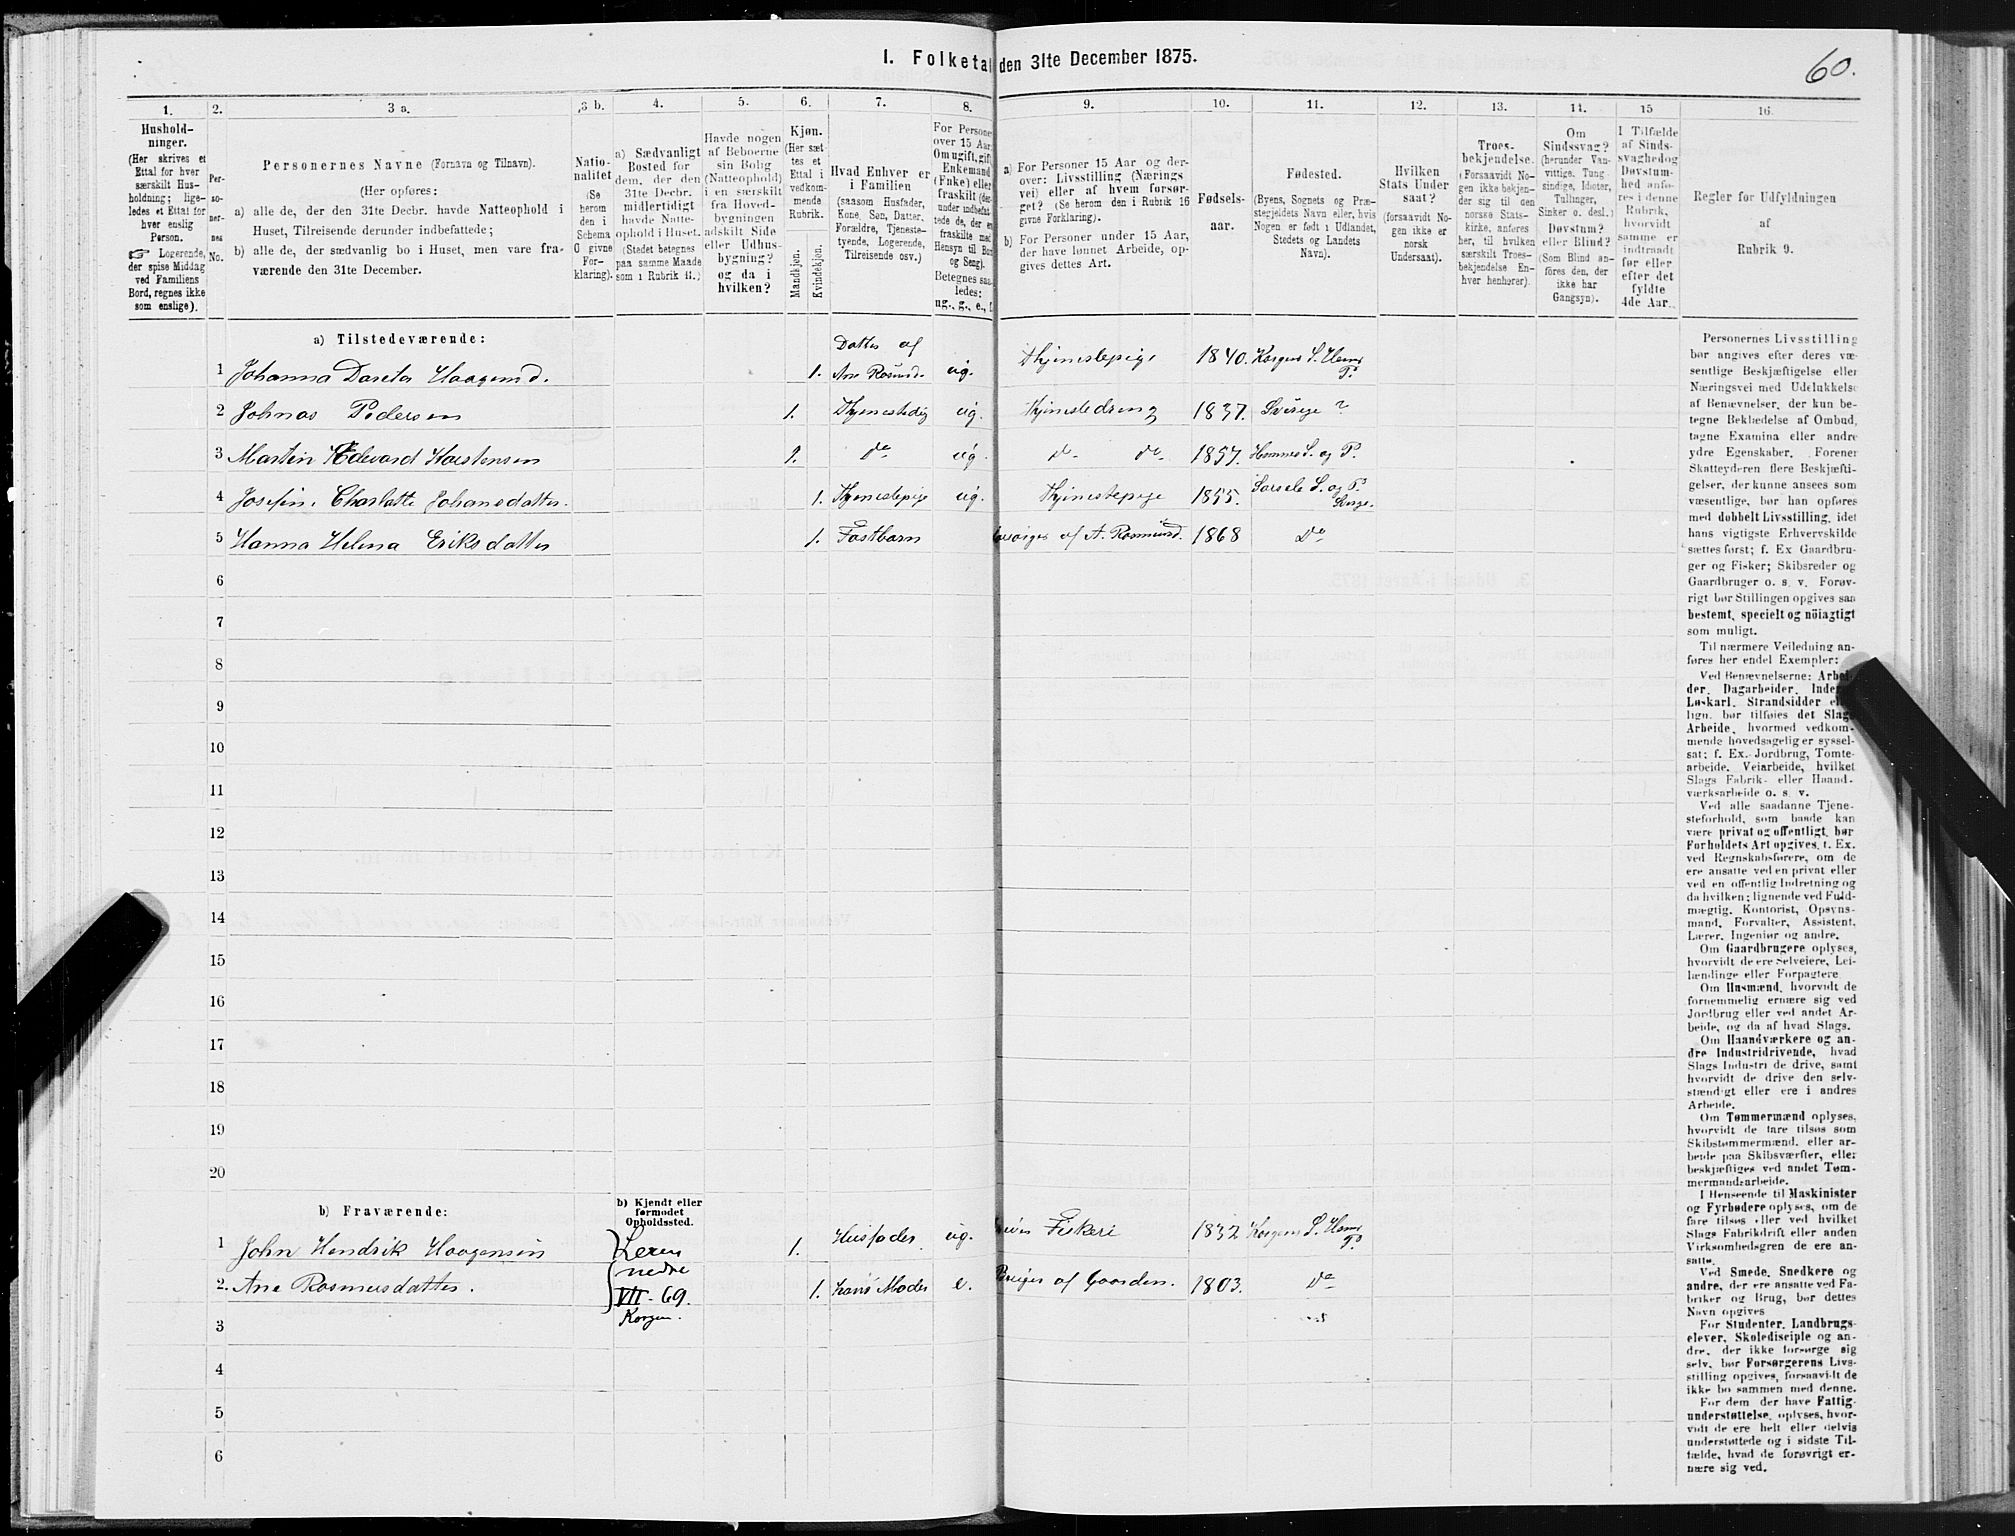 I. Folketal den 31te December 1875.
60.
1. 2. 3 a. 3 b. 4. 5. 6. 7. 8. 9. 10. 11. 12. 13. 14. 15 16.
Hushold-
ninger.
(Her skrives et
Ettal for hver
særskilt Hus-
holdning; lige-
ledes et Ettal for
hver enslig
Person.
☞ Logerende,
der spise Middag
ved Familiens
Bord, regnes ikke
som enslige).
Per-
so-
ner-
nes
No.
Personernes Navne (Fornavn og Tilnavn).
(Her opføres:
a) alle de, der den 31te Decbr. havde Natteophold i
Huset, Tilreisende derunder indbefattede;
b) alle de, der sædvanlig bo i Huset, men vare fra-
værende den 31te December.
Natio-
nalitet
(Se
herom
den i
Schema
O givne
For-
klaring).
a) Sædvanligt
Bosted for
dem, der den
31te Decbr.
midlertidigt
havde Natte-
ophold i Huset.
(Stedet betegnes
paa samme Maade
som i Rubrik 11.)
Havde nogen
af Beboerne
sin Bolig
(Natteophold)
i en særskilt
fra Hoved-
bygningen
adskilt Side
eller Udhus-
bygning?
og da i
hvilken?
Kjøn.
(Her sæt-
tes et
Ettal i
vedkom-
mende
Rubrik.
Mandkjøn.
Kvindekjøn.
Hvad Enhver er
i Familien
(saasom Husfader,
Kone, Søn, Datter,
Forældre, Tjeneste-
tyende, Logerende,
Tilreisende osv.)
For Personer
over 15 Aar:
Om ugift, gift,
Enkemand
(Enke) eller
fraskilt (der-
under indbefat-
tede de, der ere
fraskilte med
Hensyn til Bord
og Seng).
Betegnes saa-
ledes:
ug., g., e., f.
a) For Personer 15 Aar og der-
over: Livsstilling (Nærings
vei) eller af hvem forsør-
get? (Se herom den i Rubrik 16
givne Forklaring).
b) For Personer under 15 Aar,
der have lønnet Arbeide, op-
gives dettes Art.
Fødsels-
aar.
Fødested.
(Byens, Sognets og Præ-
stegjeldets Navn eller, hvis
Nogen er født i Udlandet,
Stedets og Landets
Navn).
Hvilken
Stats Under
saat?
(forsaavidt No-
gen ikke er
norsk
Undersaat).
Troes-
bekjendelse.
(Forsaavidt Nogen
ikke bekjen-
der sig til den
norske Stats-
kirke, anføres
her, til hvilken
særskilt Troes-
bekjendelse En-
hver henhører).
Om
Sindssvag?
(herunder Van-
vittige, Tung
sindige, Idioter,
Tullinger,
Sinker o. desl.)
Døvstum?
eller Blind?
(Som Blind an-
føres den, der
ikke har
Gangsyn).
I Tilfælde
af Sinds-
svaghed og
Døvstum-
hed anfø-
res i denne
Rubrik,
hvorvidt
samme er
indtraadt
før eller
efter det
fyldte
4de Aar.
Regler for Udfyldningen
af
Rubrik 9.
a) Tilstedeværende:
1 Johanna Dorctea Haagensd. 1. Datter af Ane Rosmusd. ug. Thjenestepige 1840. Korgens S. Hemnes P.
2 Johnas Pedersen 1. ug. Thjenestedreng 1837. Sverige ?
3 Martin Edevard Karstensen 1. do ug. do do 1857. Hemnes S. og P.
4 Josefin. Charlotte Johansdatter. 1. Thjenestepige ug. Thjenestepige 1855. Sorsele S. og P.
5 Hanna Helena Eriksdatter 1. Fostbarn af A. Rosmusd. 1868 Do
6
7
8
9
10
11
12
13
14
15
16
17
18
19
20
b) Fraværende:
b) Kjendt eller
formodet
Opholdssted.
1 John Hendrik Haagensen 1. Husfader ug. Fiskeri 1832 Korgens S. Hemnes P.
2. Ane Rosmusdatter. 1. hans Moder e. af Gaarden. 1803. Do
Leren
nedre
VII-69.
Korgen.
3
4
5
6
Personernes Livsstilling
bør angives efter deres væ-
sentlige Beskjæftigelse eller
Næringsvei med Udelukkelse
af Benævnelser, der kun be-
tegne Beklædelse af Ombud,
tagne Examina eller andre
ydre Egenskaber. Forener
Skatteyderen flere Beskjæfti-
gelser, der kunne ansees som
væsentlige, bør han opføres
med dobbelt Livsstilling, idet
hans vigtigste Erhvervskilde
sættes først; f. Ex Gaardbru-
ger og Fisker; Skibsreder og
Gaardbruger o. s. v. Forøv-
rigt bør Stillingen opgives saa
bestemt, specielt og nöiagtigt
som muligt.
Til nærmere Veiledning an-
føres her endel Exempler:
Ved Benævnelserne: Arbei-
der, Dagarbeider, Inder-
Løskarl, Strandsidder el.
lign. bør tilføies det Slags
Arbeide, hvormed vedkom-
mende hovedsagelig er syssel-
sat; f. Ex. Jordbrug, Tomte-
arbeide, Veiarbeide, hvilket
Slags Fabrik- eller Haand-
værksarbeide o. s. v.
Ved alle saadanne Tjene-
steforhold, som baade kan
være privat og offentligt, bør
Forholdets Art opgives, t. Ex.
ved Regnskabsførere, om de
ere ansatte ved en privat eller
ved en offentlig Indretning og
da hvilken; lignende ved Fuld-
mægtig, Kontorist, Opsyns-
mand, Forvalter, Assistent,
Lærer, Ingeniør og andre.
Om Gaardbrugere oplyses,
hvorvidt de ere Selveiere, Lei-
lændinge eller Forpagtere.
Om Husmænd, hvorvidt de
fornemmelig ernære sig ved
Jordbrug eller ved andet Ar-
beide, og da af hvad Slags.
Om Haandværkere og an-
dre Industridrivende, hvad
Slags Industri de drive, samt
hvorvidt de drive den selv-
stændigt eller ere i andres
Arbeide.
Om Tømmermænd oplyses,
hvorvidt de fare tilsøs som
Skibstømmermænd, eller ar-
beide paa Skibsværfter, eller
beskjæftiges ved andet Tøm-
mermandsarbeide.
I Henseende til Maskinister
og Fyrbødere oplyses, om de
fare tilsøs eller ved hvilket
Slags Fabrikdrift eller anden
Virksomhedsgren de ere an-
satte.
Ved Smede, Snedkere og
andre, der ere ansatte ved Fa-
briker og Brug, bør dettes
Navn opgives
For Studenter, Landbrugs-
elever, Skoledisciple og an-
dre, der ikke forsørge sig
selv, bør Forsørgerens Livs-
stilling opgives, forsaavidt de
ikke bo sammen med denne.
For dem der have Fattig-
understøttelse, oplyses, hvor-
vidt de ere helt eller delvis
understøttede og i sidste Til-
fælde, hvad de forøvrigt er-
nære sig ved.